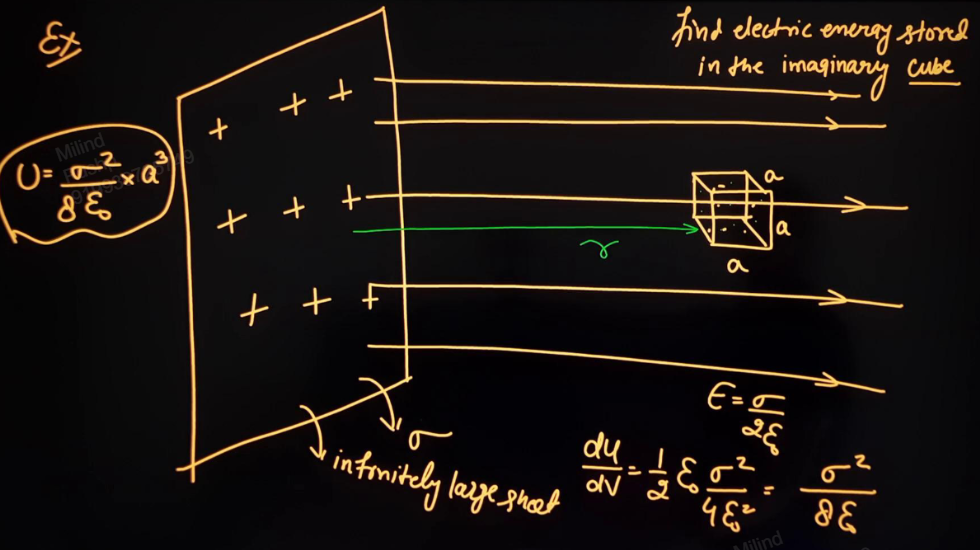 Ex
find electric energy stored
in the imaginary cube
U = σ²/8ε₀ × a³
+ + +
+ + +
+ + +
a
a
a
r
σ
infinitely large sheet
E = σ/2ε₀
du/dV = 1/2 ε₀ σ²/4ε₀² = σ²/8ε₀
Milind
Milind